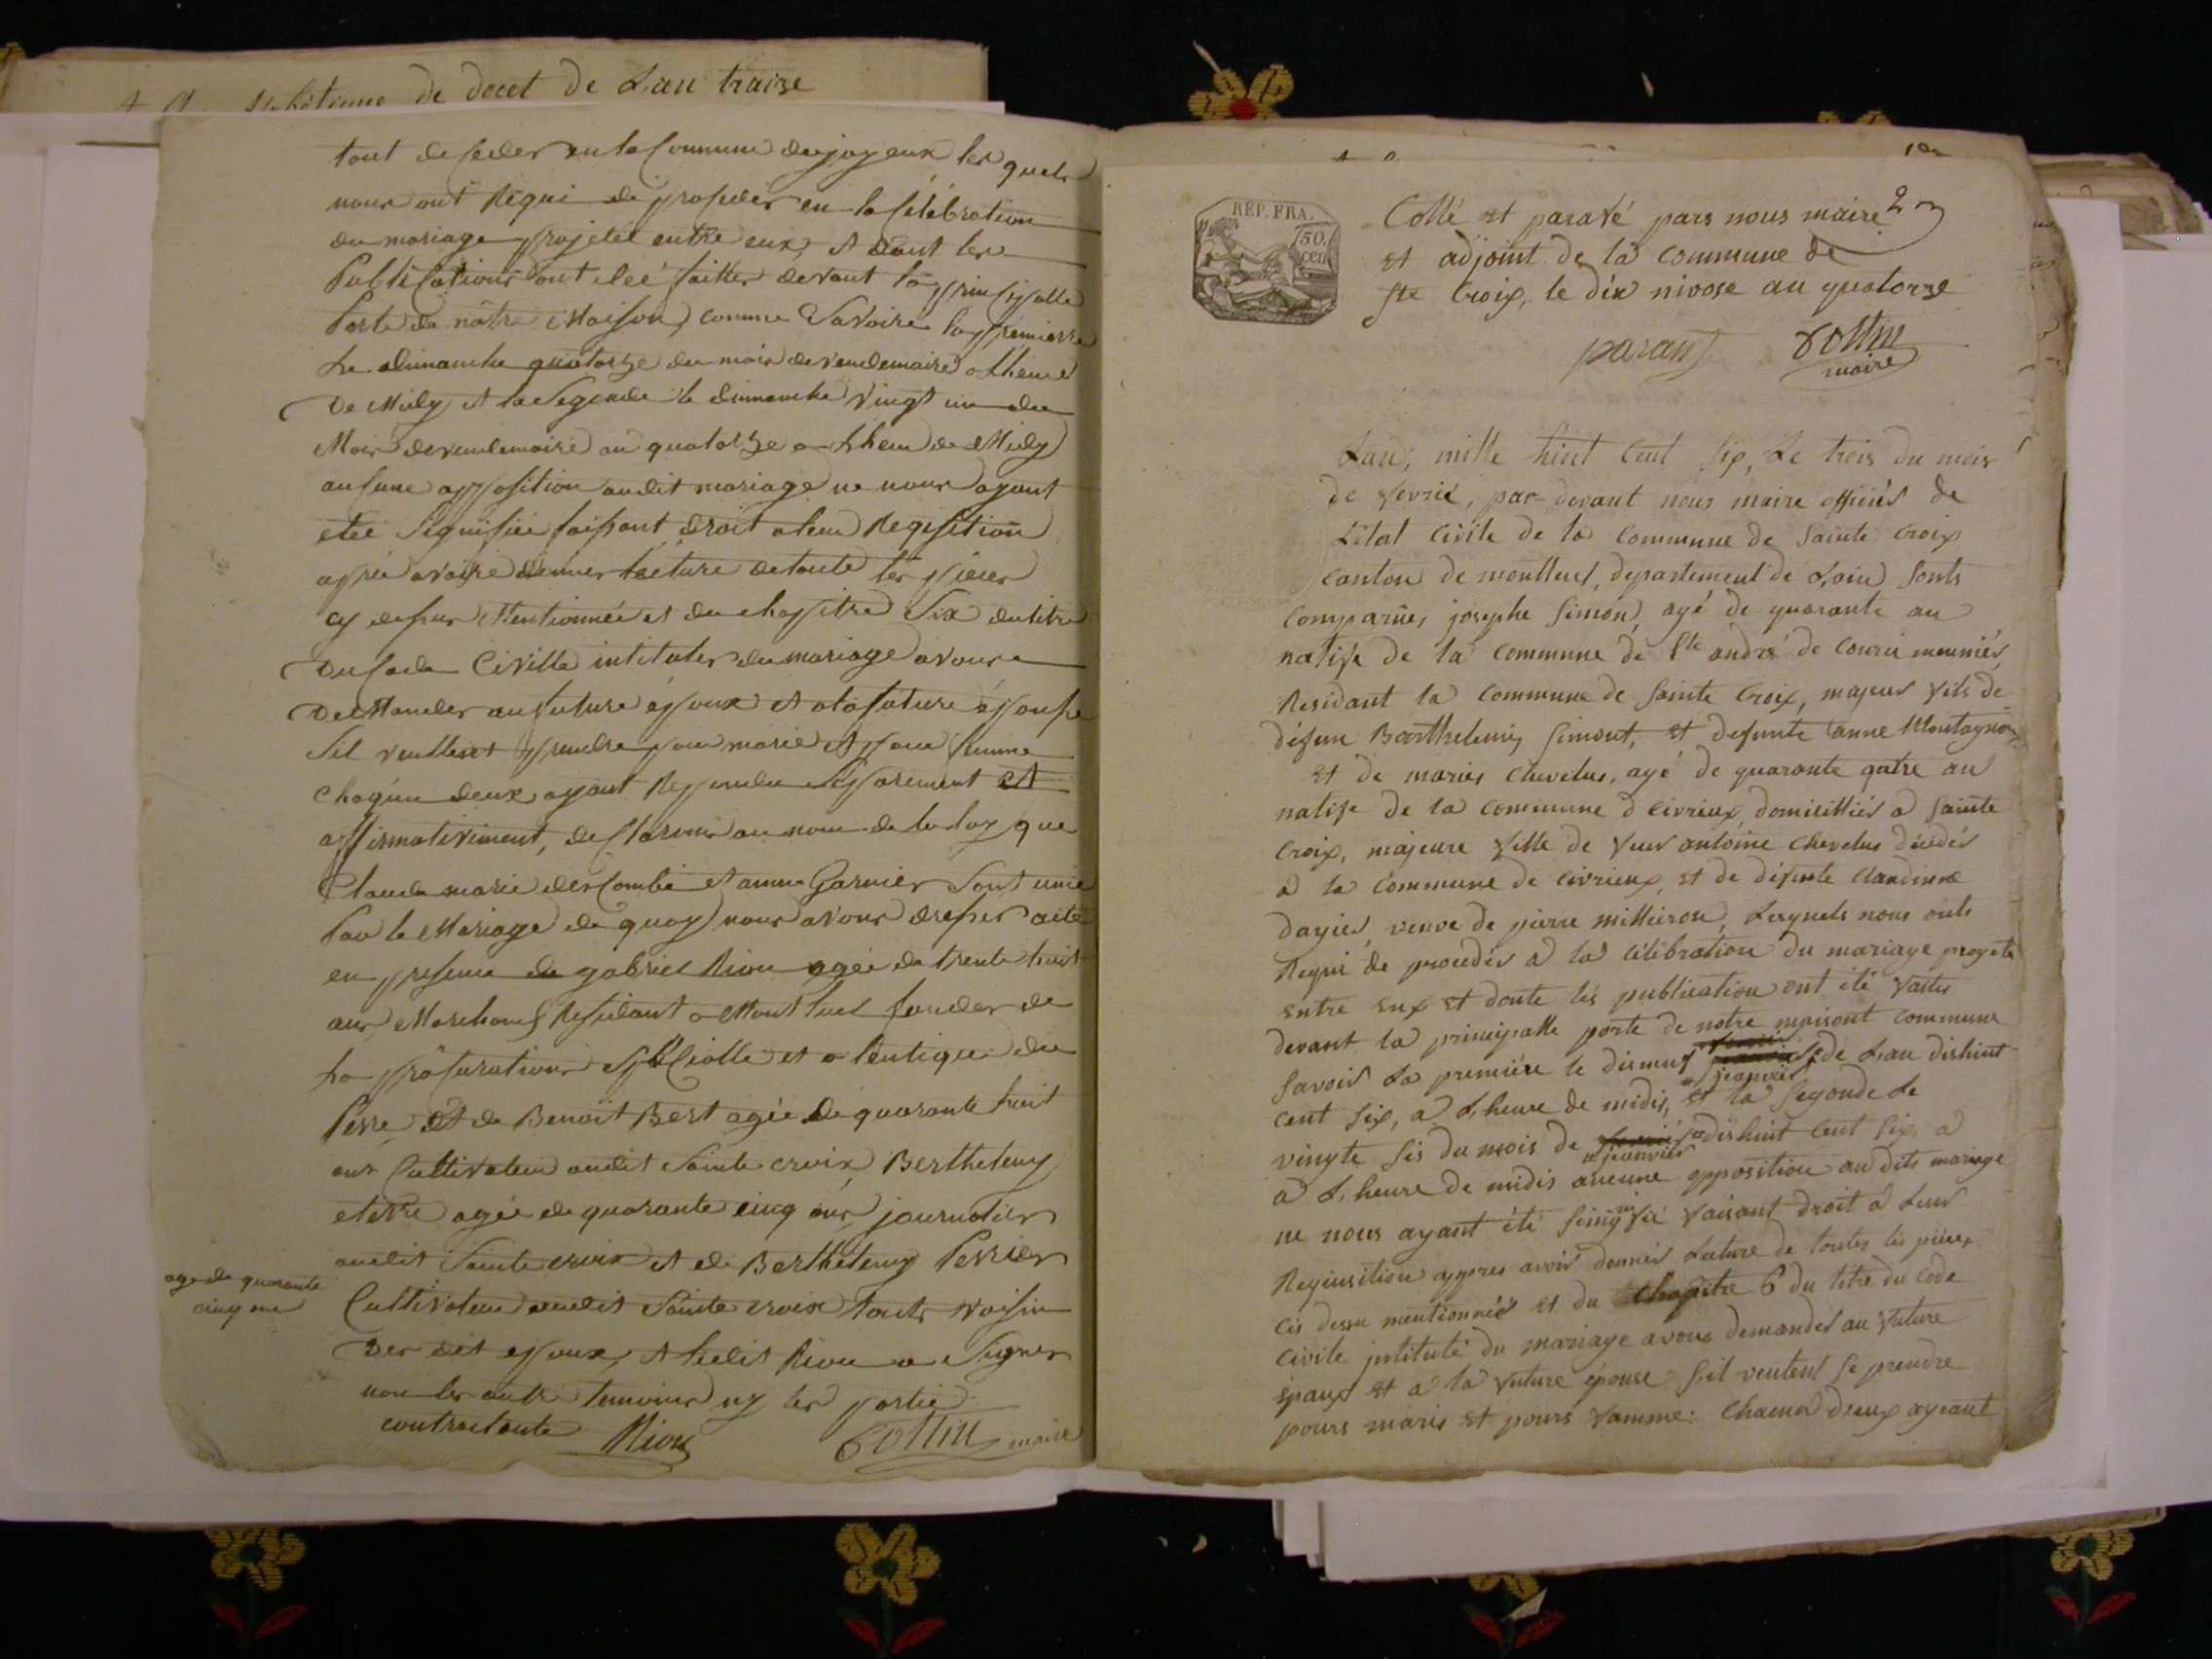 de decet de Lan traize
tout deceder en la Commune de joyeux les quels
nous ont Requi de proseder en la sélébration
du mariage projetté entre eux, et dont les
Publications ont étéé faittes devant la prinsipalle
Porte de nâtre Maison, comme Savoire la premierre
Le dimanche quatorze du mois de vendemaire a Lheure
De Midy et la Segonde le dimmanche vingt un du
Mois de vendemaire an quatorze a Lheure de Midy
aucune opposition audit mariage ne nous ayant
étée Signifiée faissant droit a leur Reqisition
aprée avoire donner lecture de toute les pieces
cy dessus Mentionnée et du chapitre Six du titre
Du Code Civille intituler du mariage avons
Demander au future époux et a la future épouse
Sil veullent prendre pour marie et pour femme
chaqun deux ayant Repondu Separement et
affirmativement, declarons au nom de la loy que
Claude marie descombe et anne Garnier Sont unie
Par le Mariage de quoy nous avons dresser acte
en presence de gabriel Rion agée de trente huit
ans Marchand Residant a Montluel fondée de
la procuration Spéciolle et autentique du
Perre et de Benoit Bert agée de quarante huit
ans Cultivateur audit Sainte croix Berthelemy
eterre agée de quarante cinq ans journalier
audit Sainte croix et de Berthelemy Perrier
age de quarante
cinq ans
Cultivateur audit Sainte croix touts voisin
Des dit epoux, et ledit Rion a Signer
non les autre temoins ny les partie
contractante Rion Cottin maire
REP. FRA.
50 cen
2
Cotté et parafé pars nous maire
et adjoint de la commune de
Ste Croix, le dix nivose an quatorze
paran Cottin
maire
Lan, mille huit Cent Six, Le trois du mois
de fevrié, par devant nous maire officiés de
Létat Civile de la Commune de Sainte Croix
canton de montluel, departement de Lain Sonts
Comparüs, josephe Simon, agé de quarante an
natife de la commune de Ste andré de Courci meunier
Residant la Commune de Sainte Croix, majeur fils de
défun Barthelemis Simont, et defunte anne Montagnon
et de mariés Chevelus, agé de quarante qatre an
natife de la commune d civrieux, domicilliés a Sainte
Croix, majeure fille de feus antoine Chevelus décédés
a la Commune de Civrieux, et de défunte Claudinne
dagier, veuve de pierre millierose, Lesquels nous onts
Requi de procedés a la célébration du mariage progeté
entre eux et donte les publication ont été faites
devant la principalle porte de notre maisont Commune
Savoir La première le dismeuf janvier de Lan dishuit
cent Six, a L'heure de midis, et la Segonde Le
vingte Sis du mois de janvier dishuit Cent Six a
a L'heure de midis aucune opposition au dits mariage
ne nous ayant été Signifié faisant droit a Leur
Requisition appres avoir donnés Lecture de toutes les pièces
cis dessu mentionnés et du Chapitre 6 du titre du Code
Civile jntitulé du mariage avons demandés au future
époux et a la future épouse Sil veulent Se prendre
pours maris et pours famme: Chacun deux ayeant